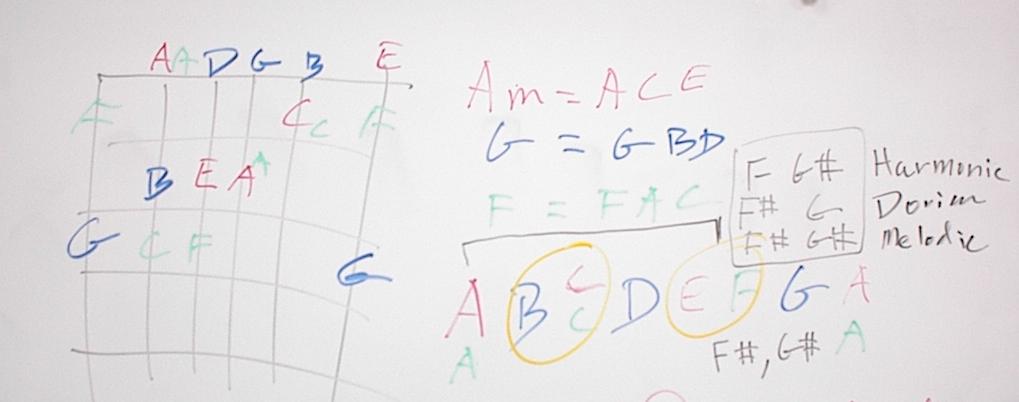 A A D G B E
F C C F
B E A A
G C F G
Am = A C E
G = G B D
F = F A C
F G# Harmonic
F# G Dorian
F# G# Melodic
A B C D E F G A
A C A
F#, G#